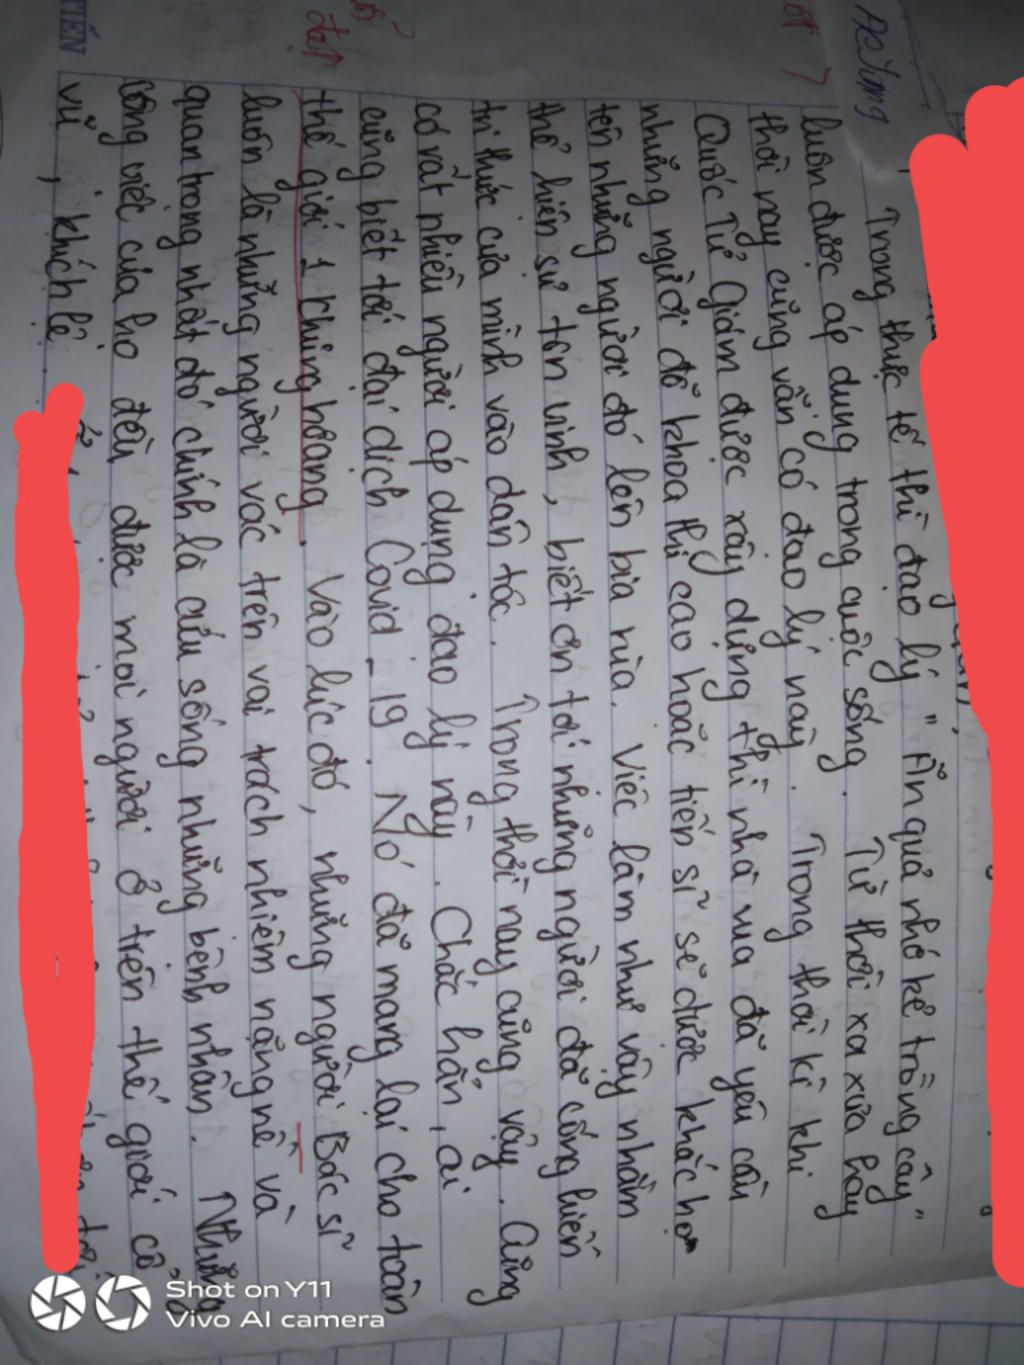 Trong thực tế thì đạo lý "Ăn quả nhớ kẻ trồng cây"
luôn được áp dụng trong cuộc sống. Từ thời xa xưa hay
thời nay cũng vẫn có đạo lý này. Trong thời kì khi
Quốc Tử Giám được xây dựng thì nhà vua đã yêu cầu
những người đỗ khoa thi cao hoặc tiến sĩ sẽ được khắc họ
tên những người đó lên bia rùa. Việc làm như vậy nhằm
thể hiện sự tôn vinh, biết ơn tới những người đã cống hiến
tri thức của mình vào dân tộc. Trong thời nay cũng vậy. Cũng
có rất nhiều người áp dụng đạo lý này. Chắc hẳn, ai
cũng biết tới đại dịch Covid-19. Nó đã mang lại cho toàn
thế giới 1 khủng hoảng. Vào lúc đó, những người Bác sĩ
luôn là những người vác trên vai trách nhiệm nặng nề và
quan trọng nhất đó chính là cứu sống những bệnh nhân. Những
công việc của họ đều được mọi người ở trên thế giới cổ
vũ, khích lệ
TIẾN
đạt
Shot on Y11
Vivo AI camera